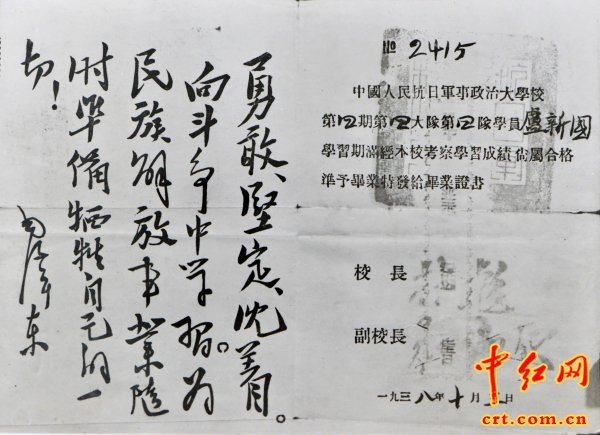 勇敢、坚定、沈着。
向斗争中学习。为
民族解放事业随
时準備牺牲自己的一
切！
毛泽东
№ 2415
中國人民抗日軍事政治大學校
第四期第四大隊第四隊學員盧新國
學習期滿經本校考察學習成績尚屬合格
準予畢業特發給畢業證書
校長
副校長
一九三八年十月 日
中红网
crt.com.cn